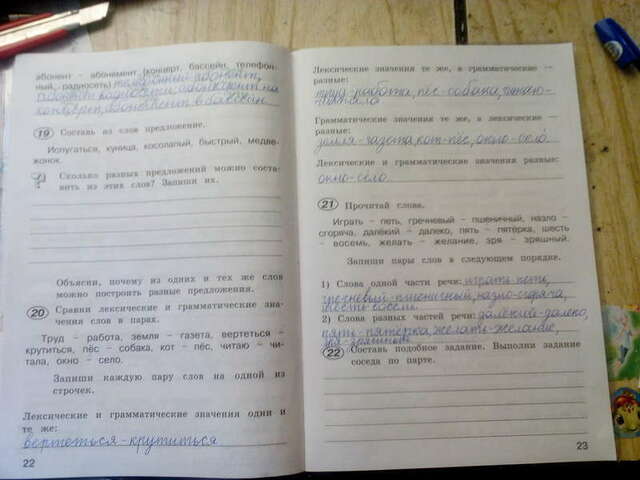 абонент – абонемент (концерт, бассейн, телефон-
ный, радиосеть) телефонный абонент,
абонент радиосети, абонемент на
концерт, абонемент в бассейн.
19 Составь из слов предложение.
Испугаться, куница, косолапый, быстрый, медве-
жонок.
? Сколько разных предложений можно соста-
вить из этих слов? Запиши их.
Объясни, почему из одних и тех же слов
можно построить разные предложения.
20 Сравни лексические и грамматические зна-
чения слов в парах.
Труд – работа, земля – газета, вертеться –
крутиться, пёс – собака, кот – пёс, читаю – чи-
тала, окно – село.
Запиши каждую пару слов на одной из
строчек.
Лексические и грамматические значения одни и
те же:
вертеться-крутиться
22
Лексические значения те же, а грамматические —
разные:
труд-работа, пёс-собака, читаю-
читала
Грамматические значения те же, а лексические —
разные:
земля-газета, кот-пёс, окно-село
Лексические и грамматические значения разные:
окно-село
21 Прочитай слова.
Играть – петь, гречневый – пшеничный, назло –
сгоряча, далёкий – далеко, пять – пятёрка, шесть
– восемь, желать – желание, зря – зряшный.
Запиши пары слов в следующем порядке.
1) Слова одной части речи: играть-петь,
гречневый-пшеничный, назло-сгоряча,
шесть-восемь
2) Слова разных частей речи: далёкий-далеко,
пять-пятёрка, желать-желание,
зря-зряшный
22 Составь подобное задание. Выполни задание
соседа по парте.
23